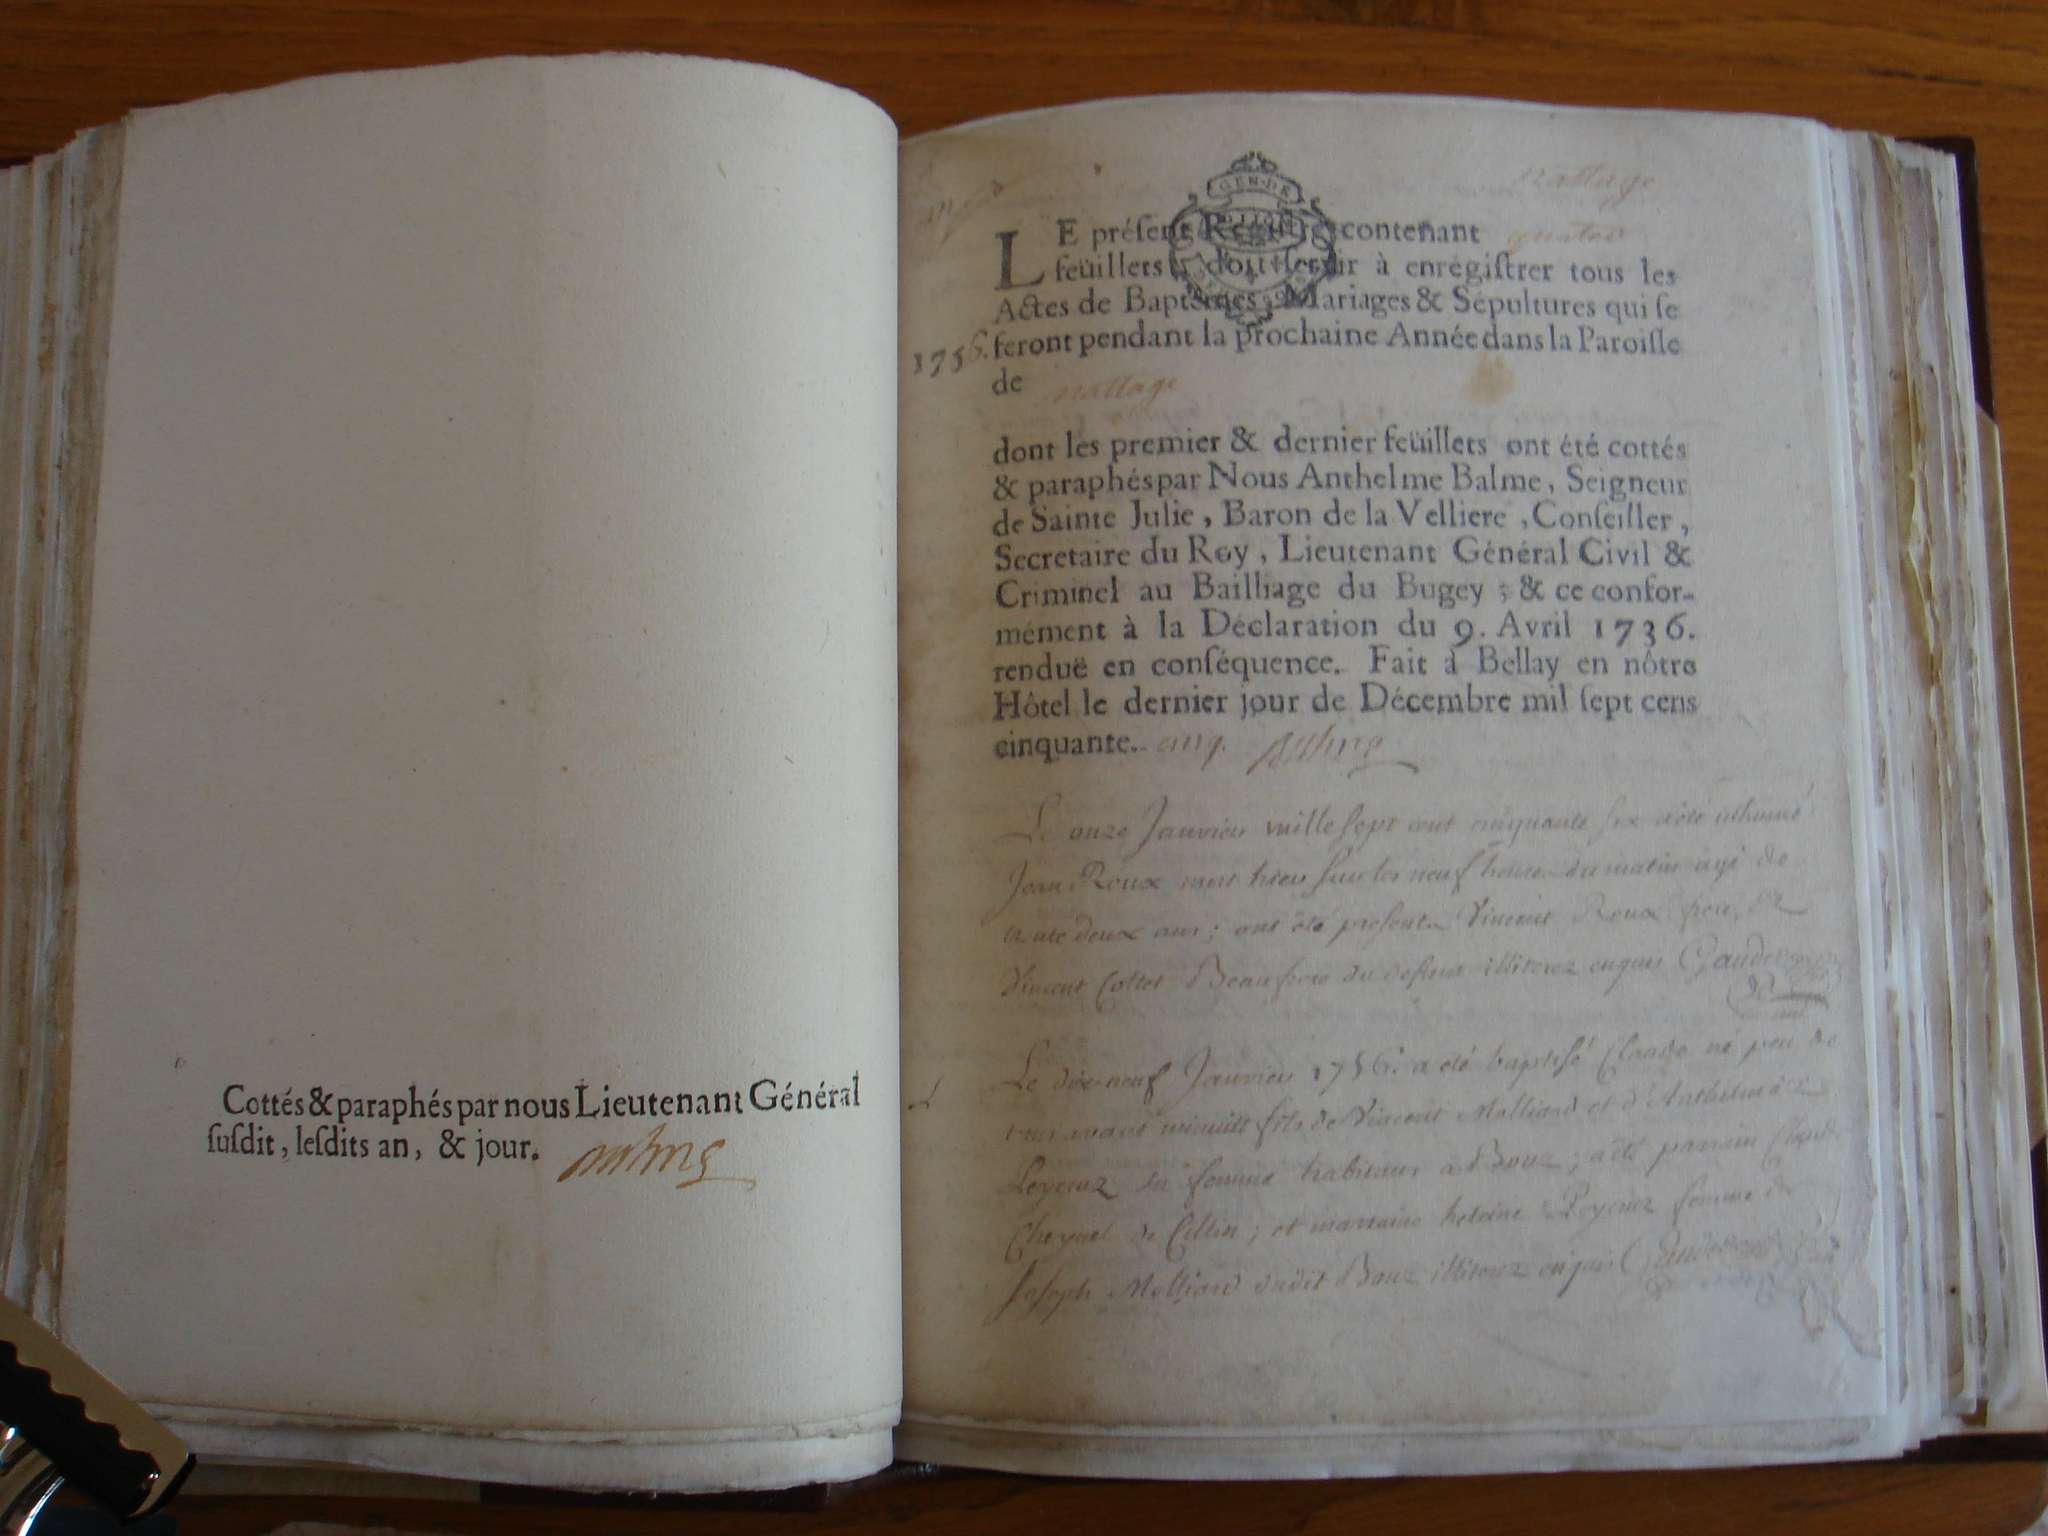 Cottés & paraphés par nous Lieutenant Général
ſuſdit, leſdits an, & jour.
Nattage
LE préſent Regiſtre contenant quatre
feüillets, doit ſervir à enrégiſtrer tous les
Actes de Baptêmes, Mariages & Sépultures qui ſe
1756. feront pendant la prochaine Année dans la Paroiſſe
de nattage
dont les premier & dernier feüillets ont été cottés
& paraphés par Nous Anthelme Balme, Seigneur
de Sainte Julie, Baron de la Velliere, Conſeiller,
Secretaire du Roy, Lieutenant Général Civil &
Criminel au Bailliage du Bugey ; & ce confor-
mément à la Déclaration du 9. Avril 1736.
renduë en conſéquence. Fait à Bellay en nôtre
Hôtel le dernier jour de Décembre mil ſept cens
cinquante. cinq.
Le onze Janvier mille sept cent cinquante six a été inhumé
Jean Roux mort hier sur les neuf heures du matin agé de
trente deux ans ; ont été presents Vincent Roux frere, et
Vincent Cottet Beaufrere du defunt illiterez enquis
Le dix-neuf Janvier 1756. a été baptisé Claude né peu de
tems avant minuit fils de Vincent Molliard et d'Anthelmette
sa femme habitans a Bouz ; a été parrain Claude
de Cillin ; et marraine femme de
Joseph Molliard dudit Bouz illiterez enquis